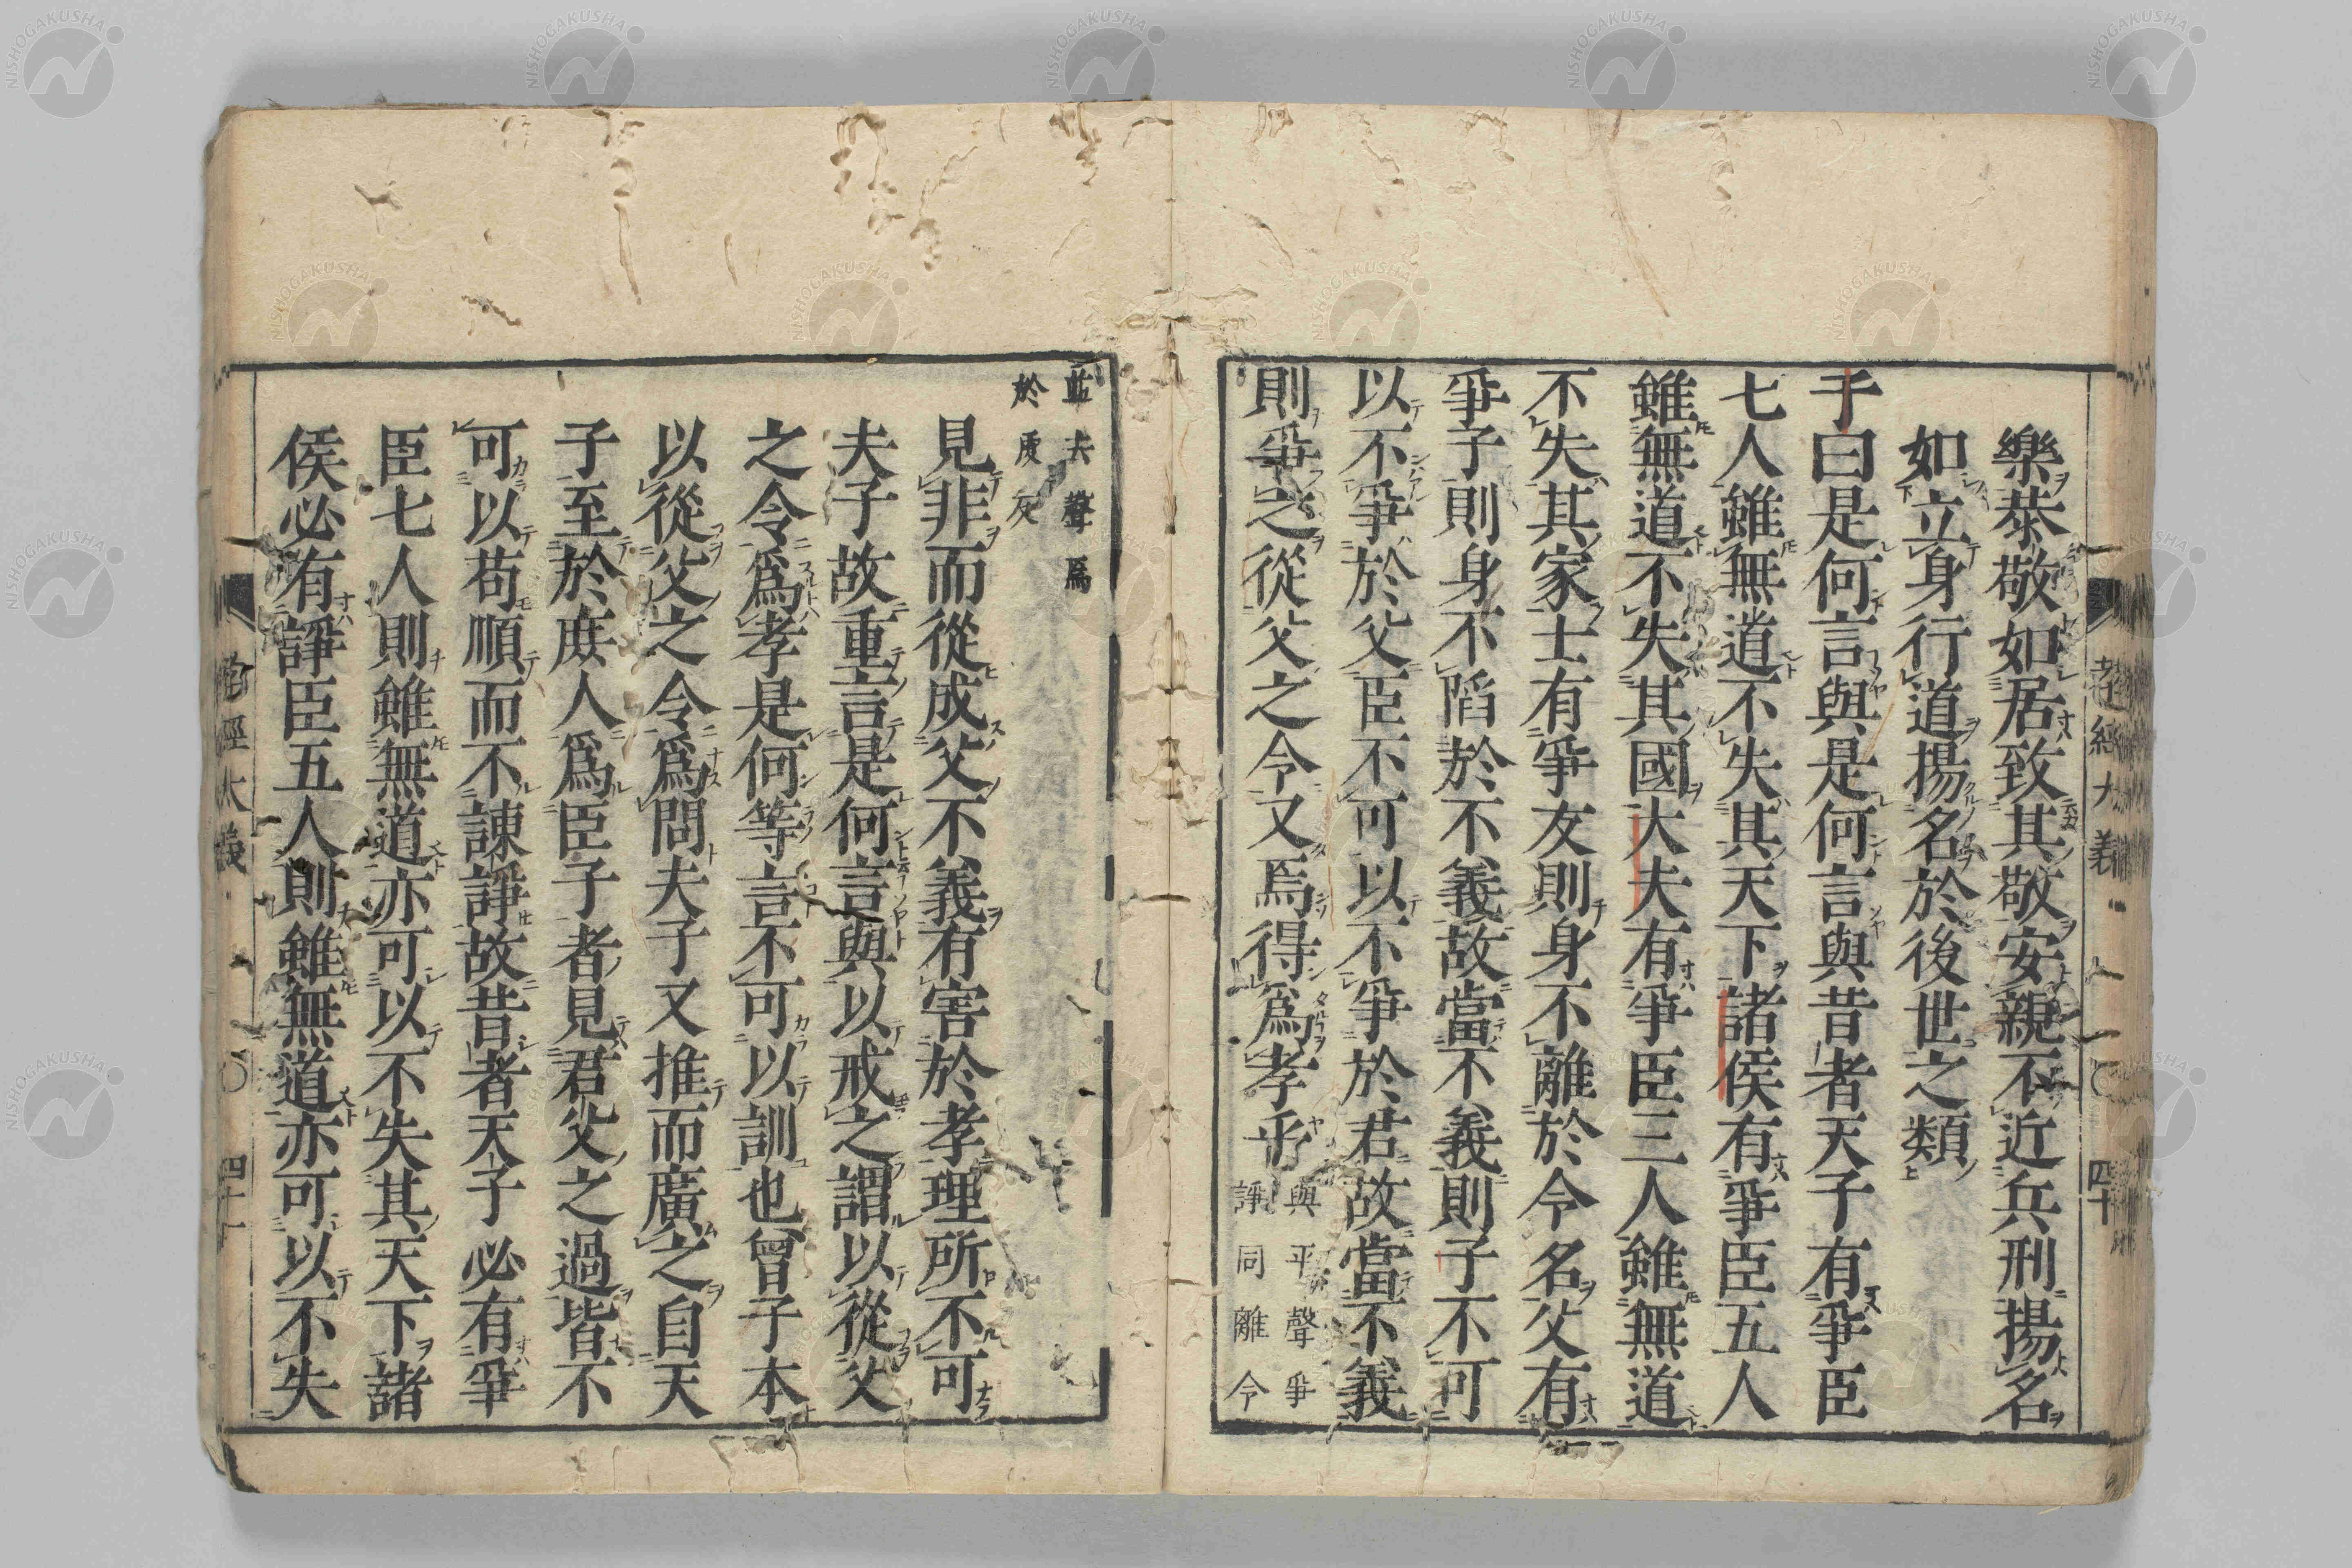 樂恭敬如居致其敬安親不近兵刑揚名
如立身行道揚名於後世之類
子曰是何言與是何言與昔者天子有爭臣
七人雖無道不失其天下諸侯有爭臣五人
雖無道不失其國大夫有爭臣三人雖無道
不失其家士有爭友則身不離於令名父有
爭子則身不陷於不義故當不義則子不可
以不爭於父臣不可以不爭於君故當不義
則爭之從父之令又焉得爲孝乎
與平聲爭
諍同離令
並去聲焉
於虔反
見非而從成父不義有害於孝理所不可
夫子故重言是何言與以戒之謂以從父
之令爲孝是何等言不可以訓也曾子本
以從父之令爲問夫子又推而廣之自天
子至於庶人爲臣子者見君父之過皆不
可以苟順而不諫諍故昔者天子必有爭
臣七人則雖無道亦可以不失其天下諸
侯必有諍臣五人則雖無道亦可以不失
孝經大義
四十
孝經大義
四十一
NISHOGAKUSHA